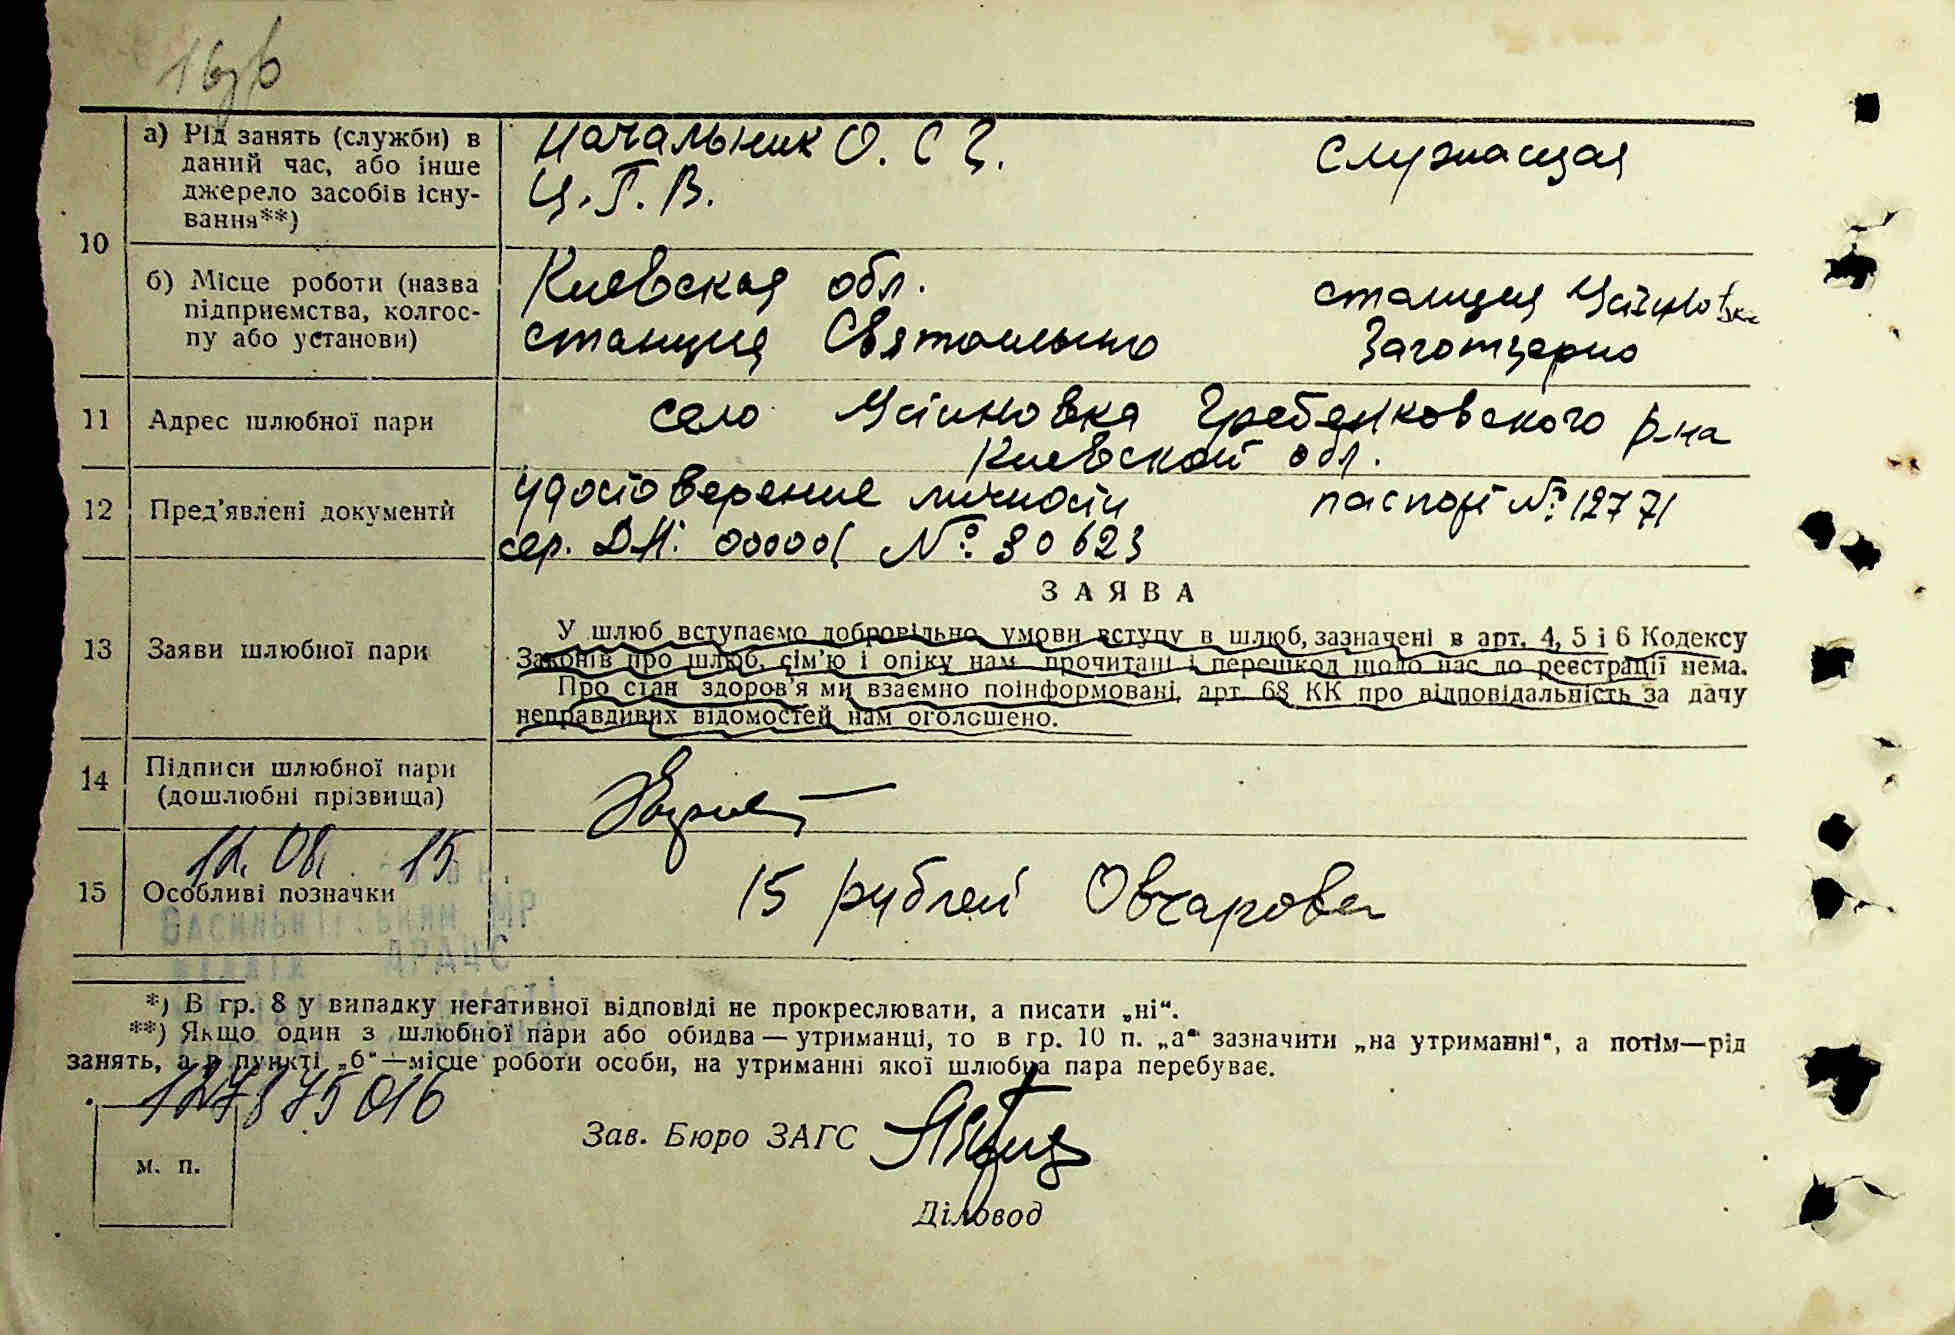 16зв
10
а) Рід занять (служби) в
даний час, або інше
джерело засобів існу-
вання**)
Начальник О. С Ц.
Ц. Г. В.
служащая
б) Місце роботи (назва
підприємства, колгос-
пу або установи)
Киевская обл.
станция Святошыно
станция
Заготзерно
11 Адрес шлюбної пари
село Устиновка Гребенковского р-на
Киевской обл.
12 Пред'явлені документи
удостоверение личности
сер. ДН. 000001 № 30623
паспорт № 12771
ЗАЯВА
13 Заяви шлюбної пари
У шлюб вступаємо добровільно, умови вступу в шлюб, зазначені в арт. 4, 5 і 6 Кодексу
Законів про шлюб, сім'ю і опіку нам прочитані і перешкод щодо нас до реєстрації нема.
Про стан здоров'я ми взаємно поінформовані, арт. 68 КК про відповідальність за дачу
неправдивих відомостей нам оголошено.
14 Підписи шлюбної пари
(дошлюбні прізвища)
15 Особливі позначки
15 рублей Овчарова
Васильківський МР
ДРАЦС
*) В гр. 8 у випадку негативної відповіді не прокреслювати, а писати „ні“.
**) Якщо один з шлюбної пари або обидва — утриманці, то в гр. 10 п. „а“ зазначити „на утриманні“, а потім—рід
занять, а в пункті „б“—місце роботи особи, на утриманні якої шлюбна пара перебуває.
Зав. Бюро ЗАГС
м. п.
Діловод